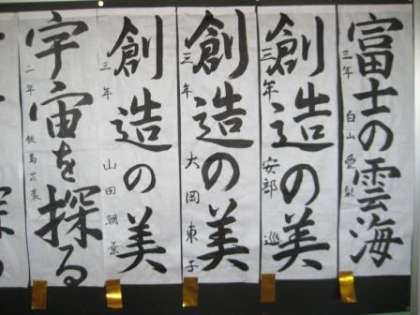 富士の雲海
三年 白山
創造の美
三年 安部 巡
創造の美
三年 大岡東子
創造の美
三年 山田
宇宙を探る
二年 飯島